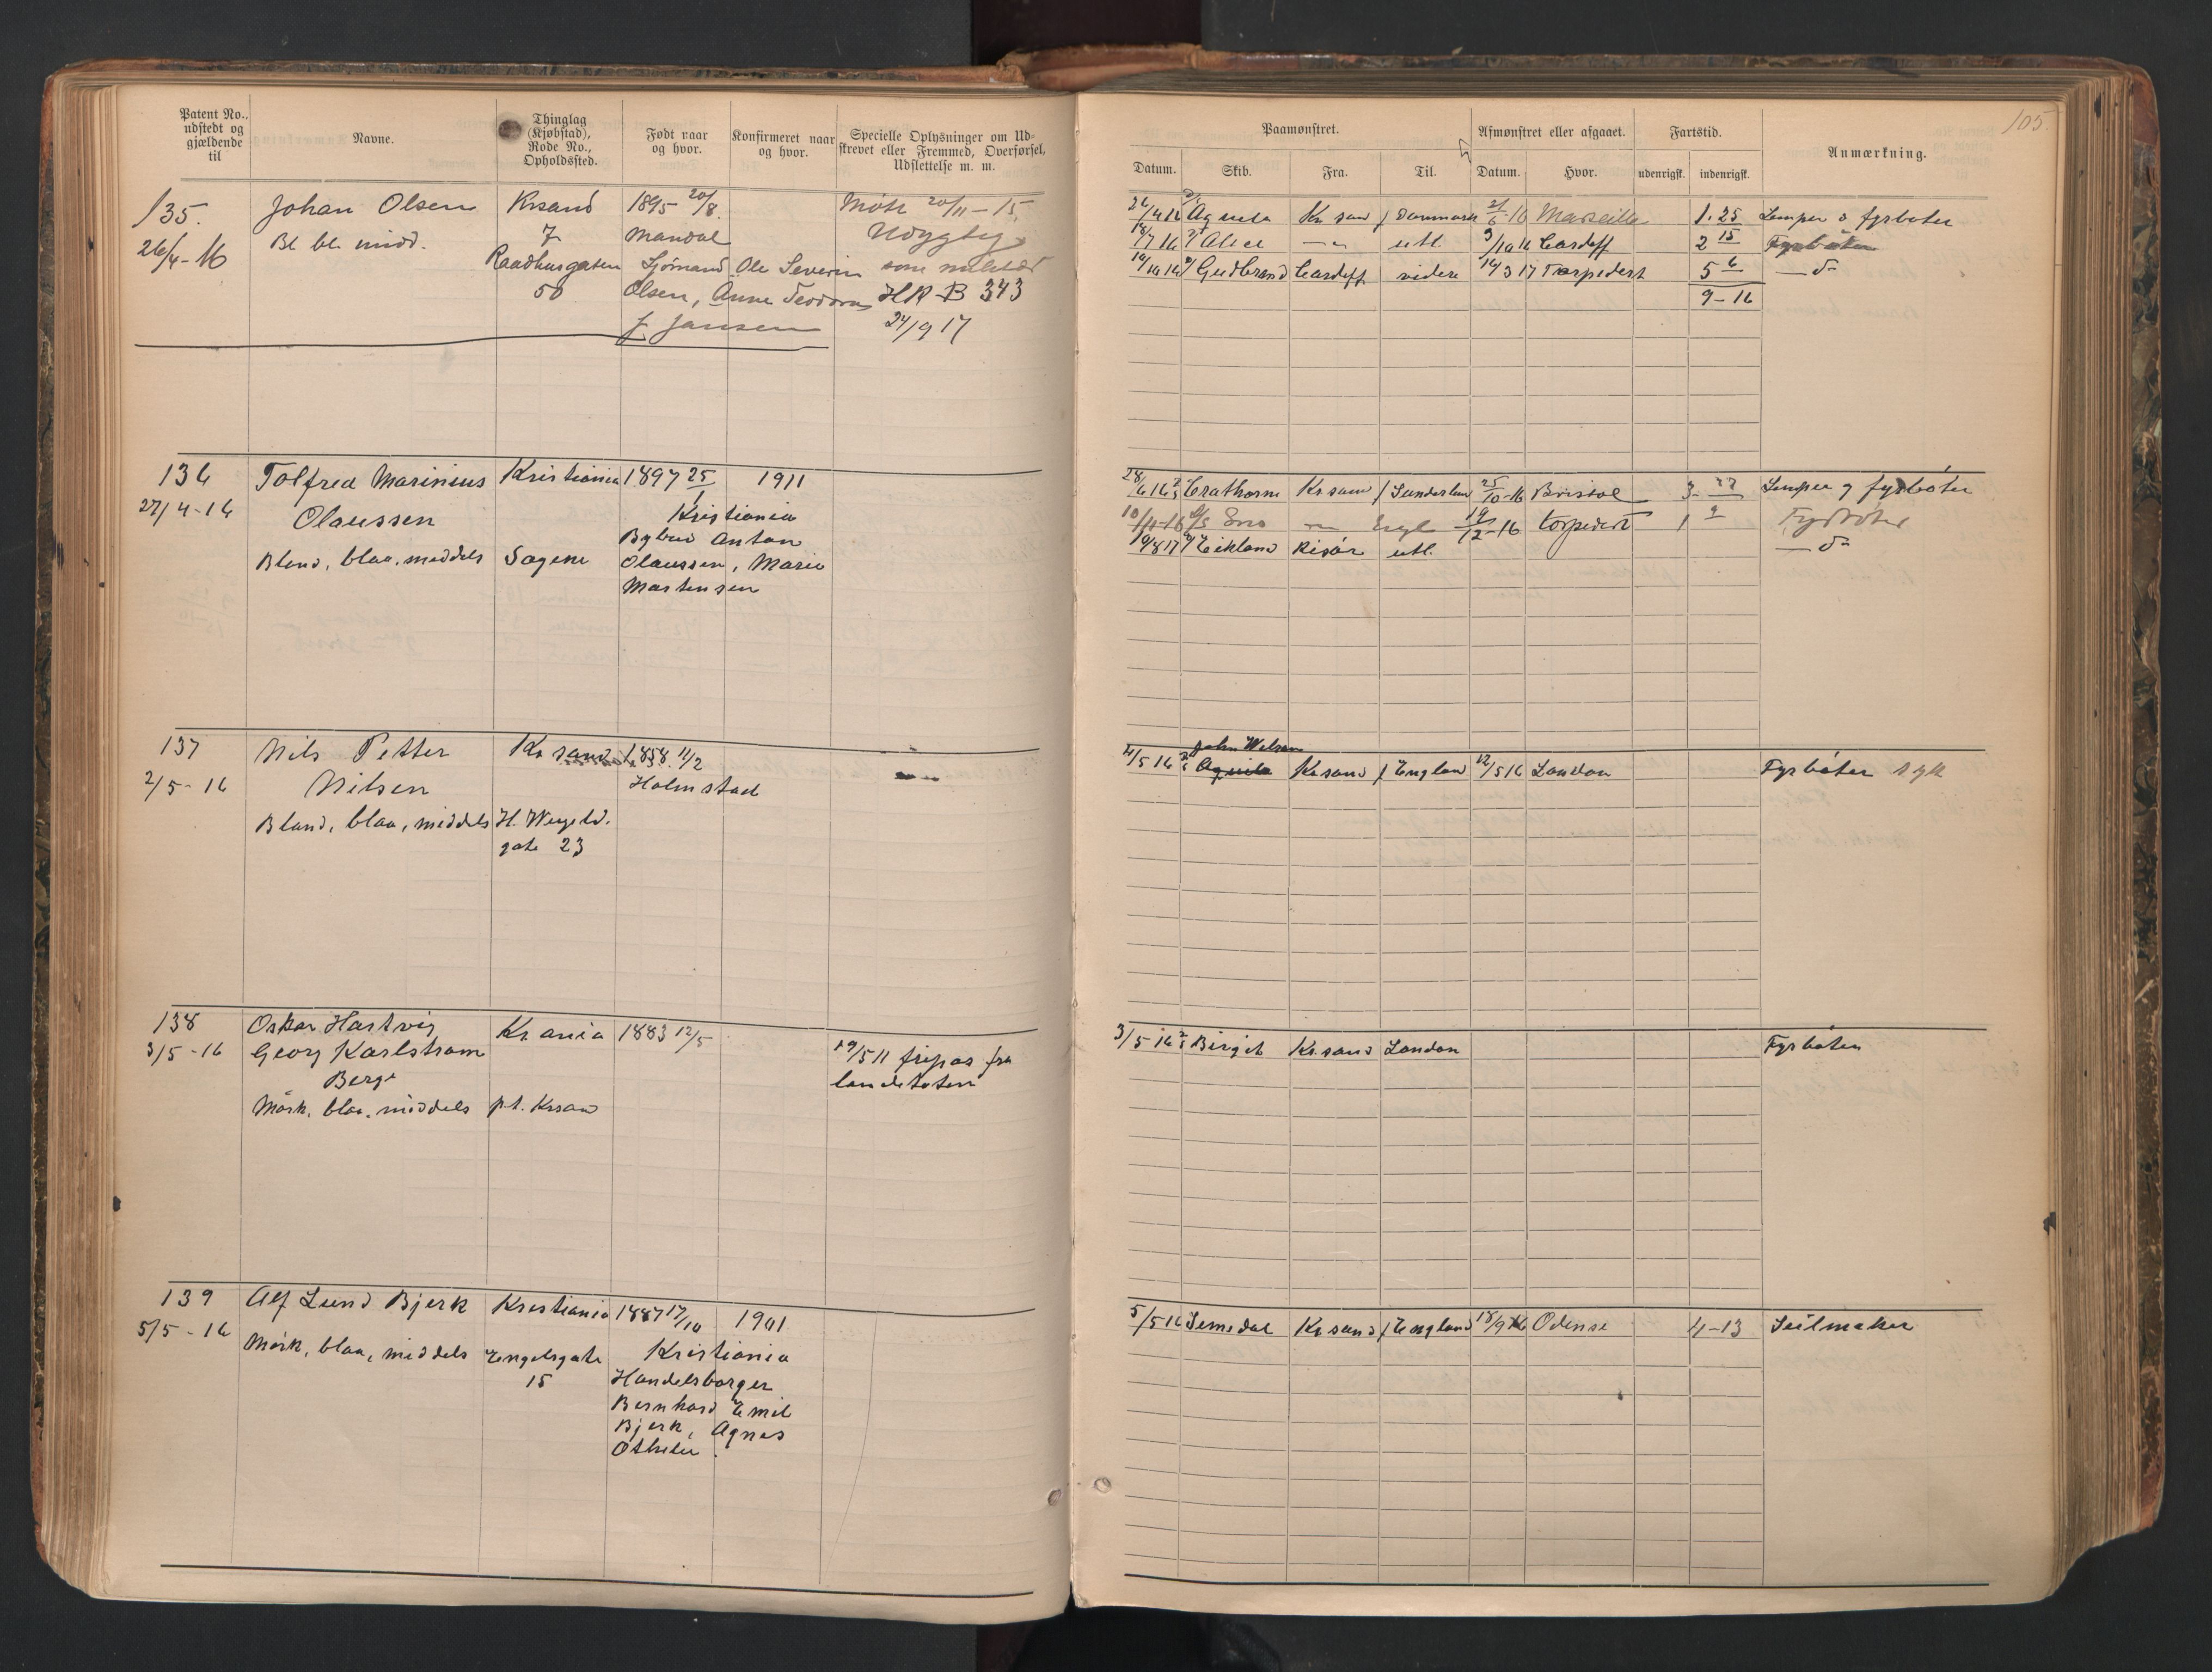 Patent No., udstedt og gjældende til
Navne.
Thinglag (Kjøbstad), Rode No., Opholdssted.
Født naar og hvor.
Konfirmeret naar og hvor.
Specielle Oplysninger om Udskrevet eller Fremmed, Overførsel, Udslettelse m. m.
135.
26/4-16
Johan Olsen
Bl bl. midd.
Krsand
7
Raadhusgaten
50
1895 20/8.
Mandal
Sjømand Ole Severin
Olsen, Anne Teodora
f. Jansen
Møtt 20/11-15,
Udygtig
som militær
HR B 343
24/9 17
136
27/4-16
Tolfred Marinius
Olaussen
Blond, blaa, middels
Kristiania
Sagene
1897 25/1
1911
Kristiania
Bybud Anton
Olaussen, Marie
Martensen
137
2/5-16
Nils Petter
Nilsen
Blond, blaa, middels
Kr sand
H. Wergeld.
gate 23
1858. 11/2
Halmstad
138
3/5-16
Oskar Hartvig
Georg Karlstrøm
Berge
Mørk, blaa, middels
Kr ania
p.t. Krsan
1883 12/5
19/5 11 fripas fra
landetaten
139
5/5-16
Alf Lund Bjerk
Mørk, blaa, middels
Kristiania
Engelsgate
15
1887 17/10
1901
Kristiania
Handelsborger
Bernhard Emil
Bjerk, Agnes
105.
Paamønstret.
Afmønstret eller afgaaet.
Fartstid.
Anmærkning.
Datum.
Skib.
Fra.
Til.
Datum.
Hvor.
udenrigsk.
indenrigsk.
26/4 16 Kr san / Danmark Marseille 1. 25 Lemper o fyrbøter
18/7 16 Alice —"— utl. 3/10 16 Cardeff 2 15 Fyrbøter
14/10 16 Gudbrand Cardeff videre 14/3 17 Torpedert 5 6 — do
9-16
28/6 16 Crathorne Kr san / Sunderlan 25/10-16 Bristol 3- 27 Lemper og fyrbøter
10/11-16 —"— Engl 19/12-16 torpedert 1 9 Fyrbøter
10/8 17 Eikland Risør utl. — do
John Wilson
4/5 16 Aquila Kr sand / Englan 12/5 16 London Fyrbøter syk
3/5-16 Birgit Kr. sand London Fyrbøter
5/5 16 Semedal Kr sand / England 18/9 16 Odense 4-13 Seilmaker